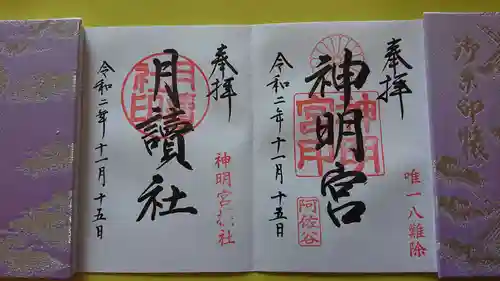 奉拝
唯一八難除
神明宮
神明宮印
阿佐谷
令和二年十一月十五日
奉拝
月讀社
神明宮
令和二年十一月十五日
御朱印帳